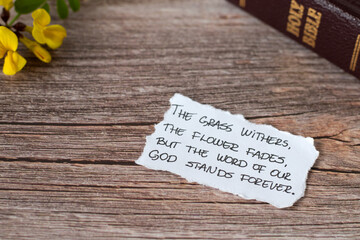 HOLY
BIBLE
THE GRASS WITHERS,
THE FLOWER FADES,
BUT THE WORD OF OUR
GOD STANDS FOREVER.